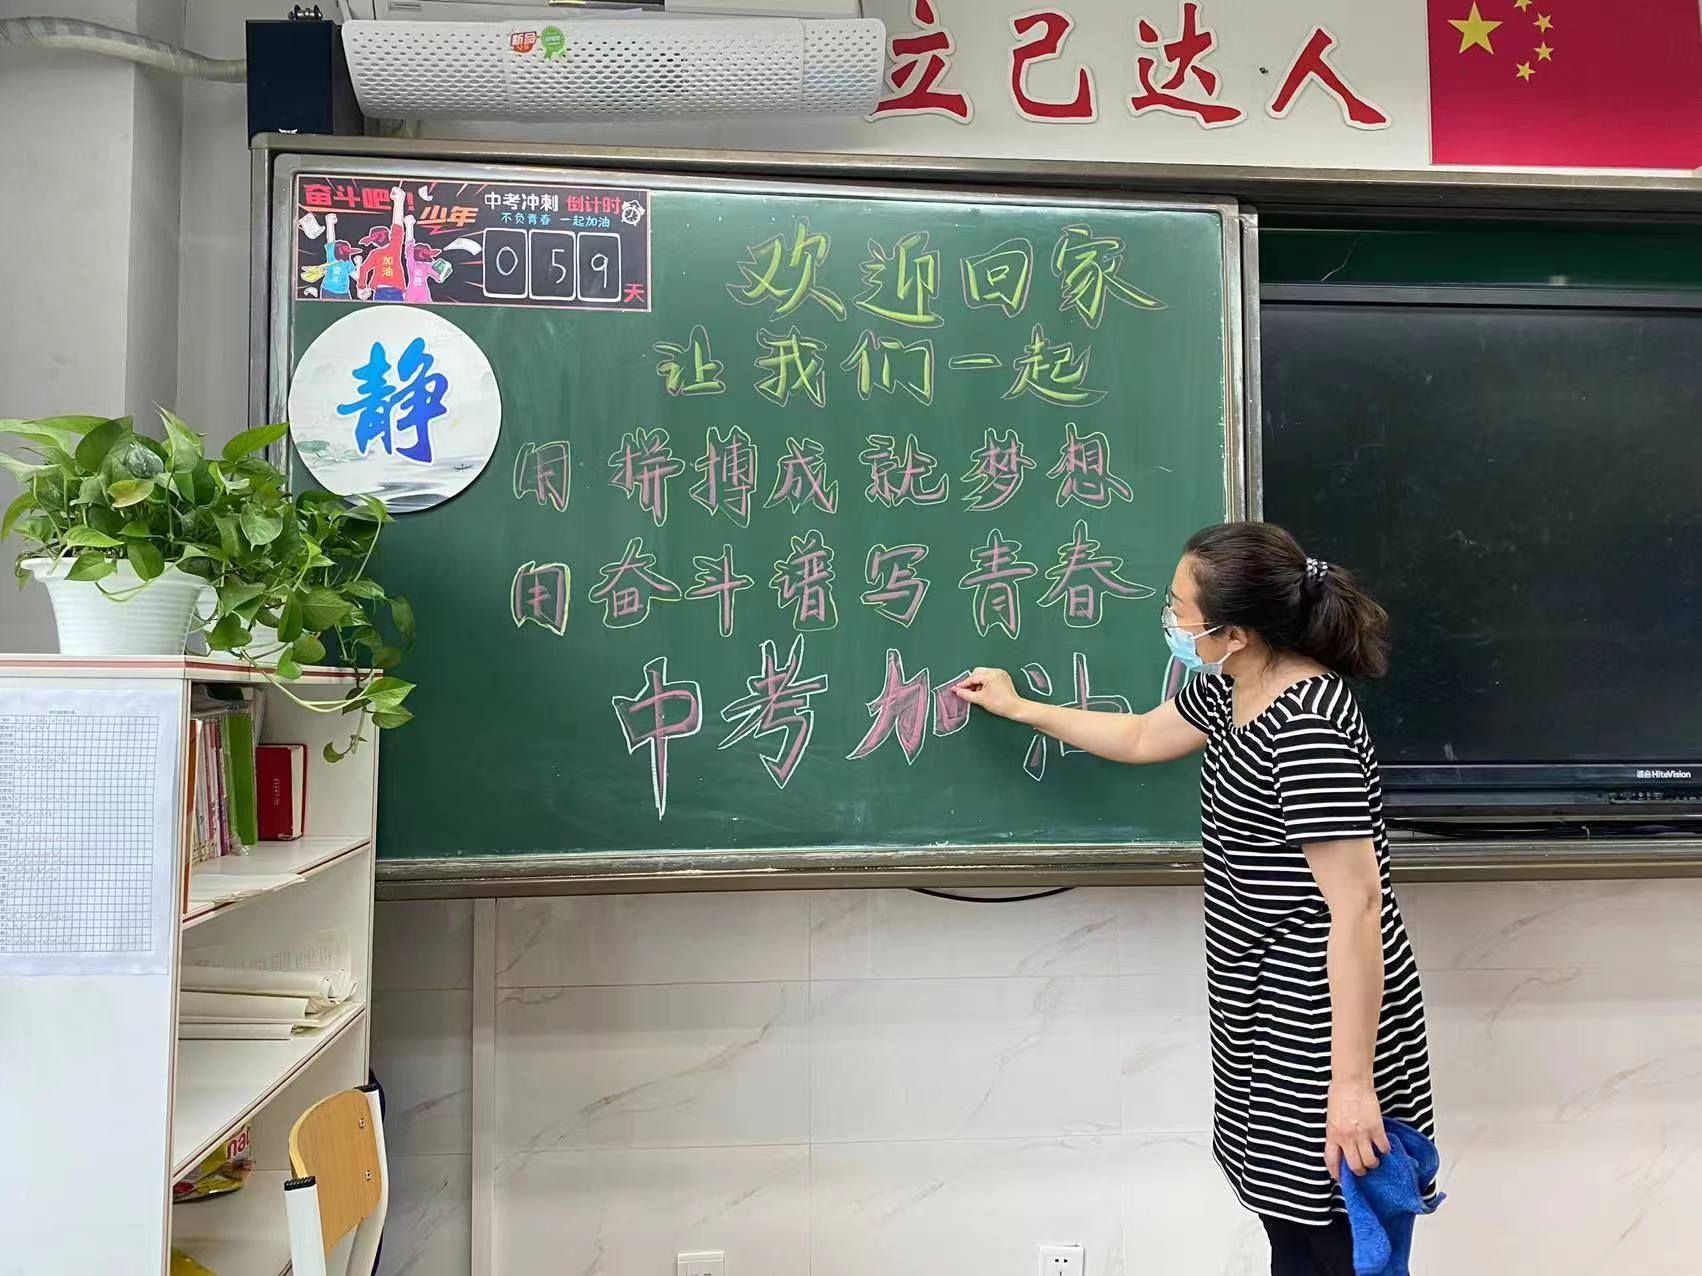 新品
立己达人
奋斗吧！
少年
中考冲刺 倒计时
不负青春 一起加油
加油
059
天
静
欢迎回家
让我们一起
用拼搏成就梦想
用奋斗谱写青春
中考加油！
HiteVision